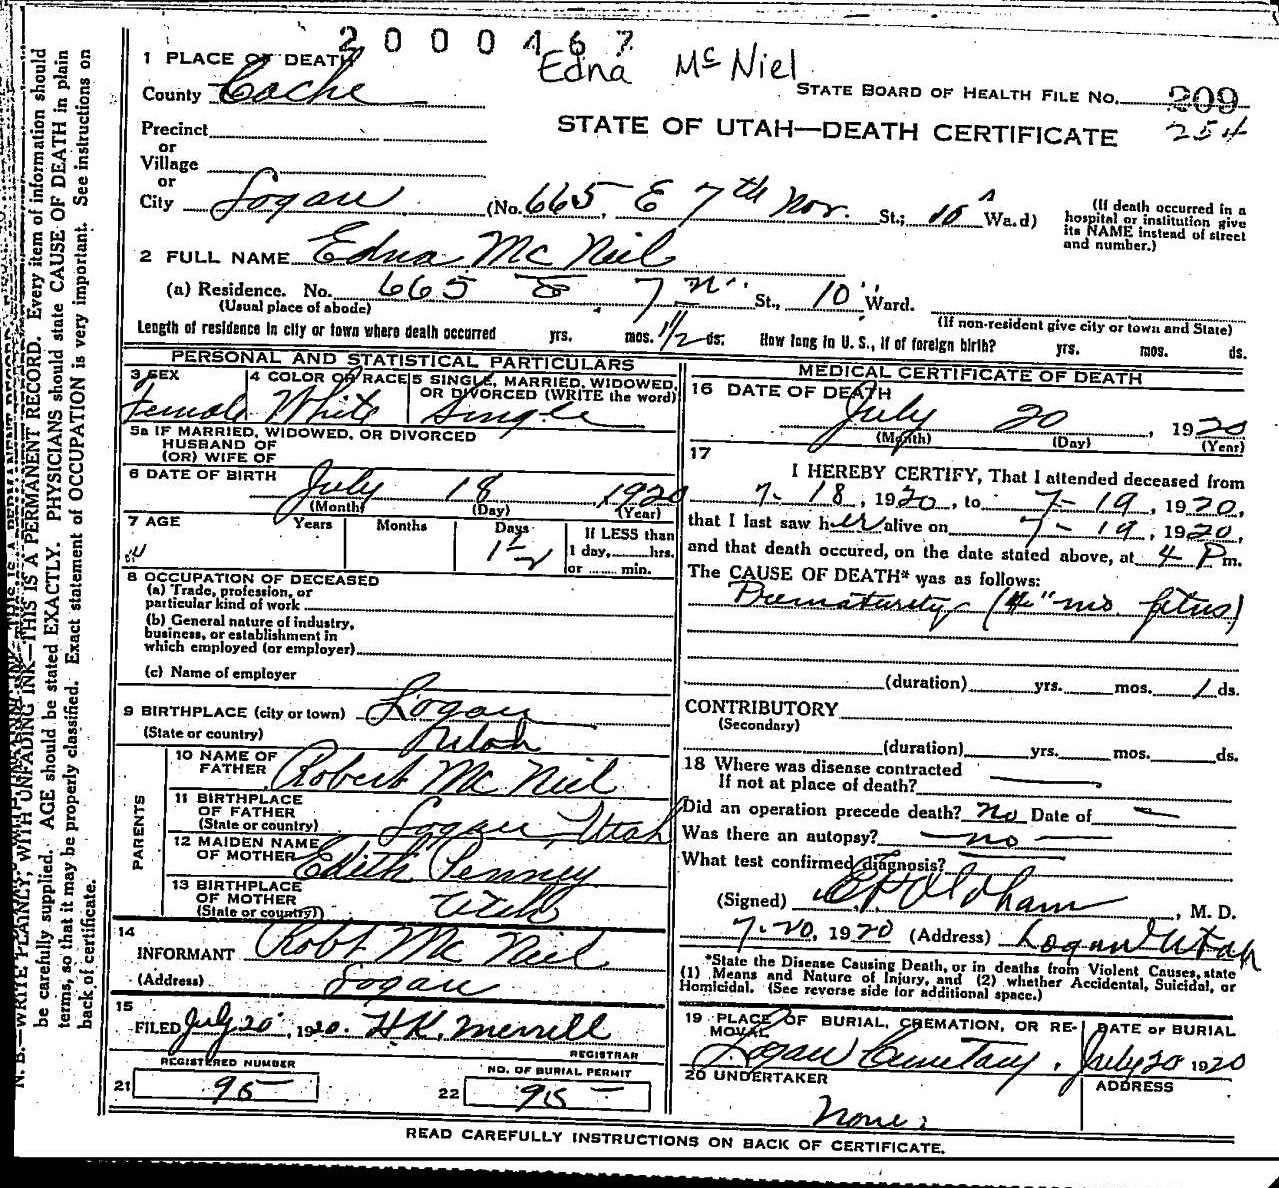 2000467
Edna McNiel
1 PLACE OF DEATH
County Cache
STATE BOARD OF HEALTH FILE No. 209
254
STATE OF UTAH—DEATH CERTIFICATE
Precinct
or
Village
or
City Logan (No. 665 E 7th Nor. St.; 10 Ward)
(If death occurred in a hospital or institution give its NAME instead of street and number.)
2 FULL NAME Edna Mc Niel
(a) Residence. No. 665 E. 7 N. St., 10 Ward.
(Usual place of abode)
(If non-resident give city or town and State)
Length of residence in city or town where death occurred yrs. mos. 1 1/2 ds. How long in U. S., if of foreign birth? yrs. mos. ds.
PERSONAL AND STATISTICAL PARTICULARS
3 SEX 4 COLOR OR RACE 5 SINGLE, MARRIED, WIDOWED, OR DIVORCED (WRITE the word)
Female White Single
5a IF MARRIED, WIDOWED, OR DIVORCED
HUSBAND OF
(OR) WIFE OF
6 DATE OF BIRTH July 18 1920
(Month) (Day) (Year)
7 AGE Years Months Days If LESS than
1 1/2 1 day,......hrs.
or ...... min.
8 OCCUPATION OF DECEASED
(a) Trade, profession, or
particular kind of work
(b) General nature of industry,
business, or establishment in
which employed (or employer)
(c) Name of employer
9 BIRTHPLACE (city or town) Logan
(State or country) Utah
PARENTS
10 NAME OF FATHER Robert Mc Niel
11 BIRTHPLACE OF FATHER (State or country) Logan, Utah
12 MAIDEN NAME OF MOTHER Edith Penney
13 BIRTHPLACE OF MOTHER (State or country) Utah
14
INFORMANT Robt Mc Niel
(Address) Logan
15
FILED July 20, 1920. H.K. Merrill
REGISTRAR
REGISTERED NUMBER
21 95
NO. OF BURIAL PERMIT
22 95
MEDICAL CERTIFICATE OF DEATH
16 DATE OF DEATH
July 20, 1920
(Month) (Day) (Year)
17
I HEREBY CERTIFY, That I attended deceased from
7-18, 1920, to 7-19, 1920,
that I last saw her alive on 7-19, 1920,
and that death occured, on the date stated above, at 4 P m.
The CAUSE OF DEATH* was as follows:
Prematurity ( mo. fetus)
(duration) yrs. mos. 1 ds.
CONTRIBUTORY
(Secondary)
(duration) yrs. mos. ds.
18 Where was disease contracted
If not at place of death?
Did an operation precede death? no Date of
Was there an autopsy? no
What test confirmed diagnosis?
(Signed) Oldham, M. D.
7-20, 1920 (Address) Logan Utah
*State the Disease Causing Death, or in deaths from Violent Causes, state
(1) Means and Nature of Injury, and (2) whether Accidental, Suicidal, or
Homicidal. (See reverse side for additional space.)
19 PLACE OF BURIAL, CREMATION, OR REMOVAL DATE OF BURIAL
Logan Cemetary. July 20 1920
20 UNDERTAKER ADDRESS
None.
READ CAREFULLY INSTRUCTIONS ON BACK OF CERTIFICATE.
N. B.—WRITE PLAINLY, WITH UNFADING INK—THIS IS A PERMANENT RECORD. Every item of information should
be carefully supplied. AGE should be stated EXACTLY. PHYSICIANS should state CAUSE OF DEATH in plain
terms, so that it may be properly classified. Exact statement of OCCUPATION is very important. See instructions on
back of certificate.